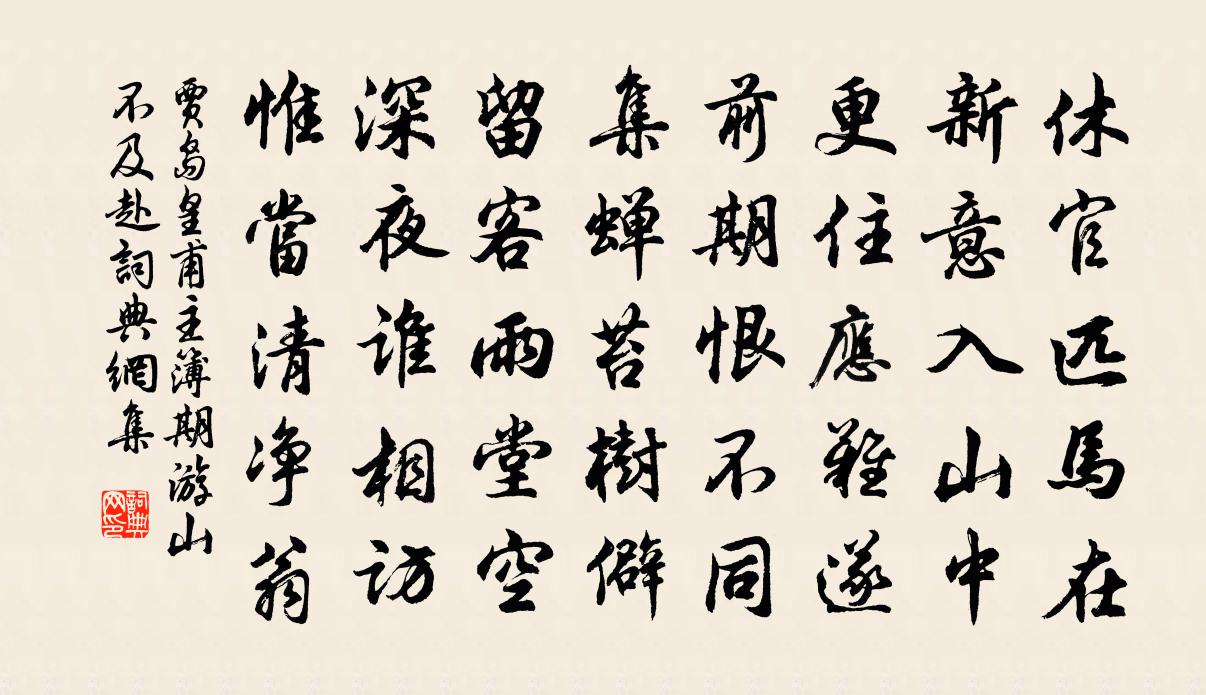 休官匹馬在
新意入山中
更住應難遂
前期恨不同
集蟬苔樹僻
留客雨堂空
深夜誰相訪
惟當清净翁
賈島皇甫主簿期游山
不及赴詞典網集
詞典
网印